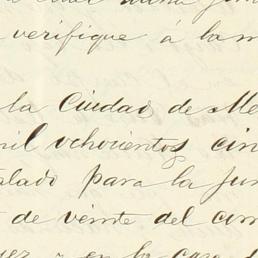 verifique á la m
la Ciudad de Me
mil ochocientos cin
alado para la Jun
de veinte del corri
en la casa d